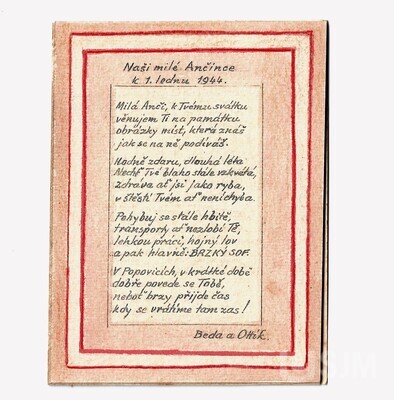 Naši milé Ančince
k 1. lednu 1944.
Milá Anči, k Tvému svátku
věnujem Ti na památku
obrázky míst, která znáš
jak se na ně podíváš.
Hodně zdaru, dlouhá léta
Nechť Tvé blaho stále vzkvétá,
zdráva ať jsi jako ryba,
v štěstí Tvém ať není chyba.
Pohybuj se stále hbitě,
transporty ať nezlobí Tě,
lehkou práci, hojný lov
a pak hlavně: BRZKÝ SOF.
V Popovicích, v krátké době
dobře povede se Tobě,
neboť brzy přijde čas
kdy se vrátíme tam zas!
Beda a Ottík.